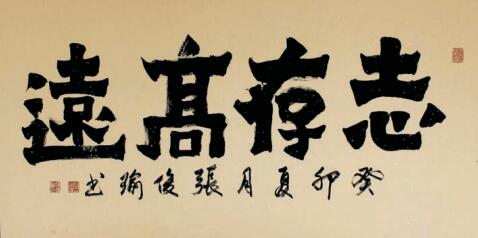 志存高遠
癸卯夏月張俊瑜书